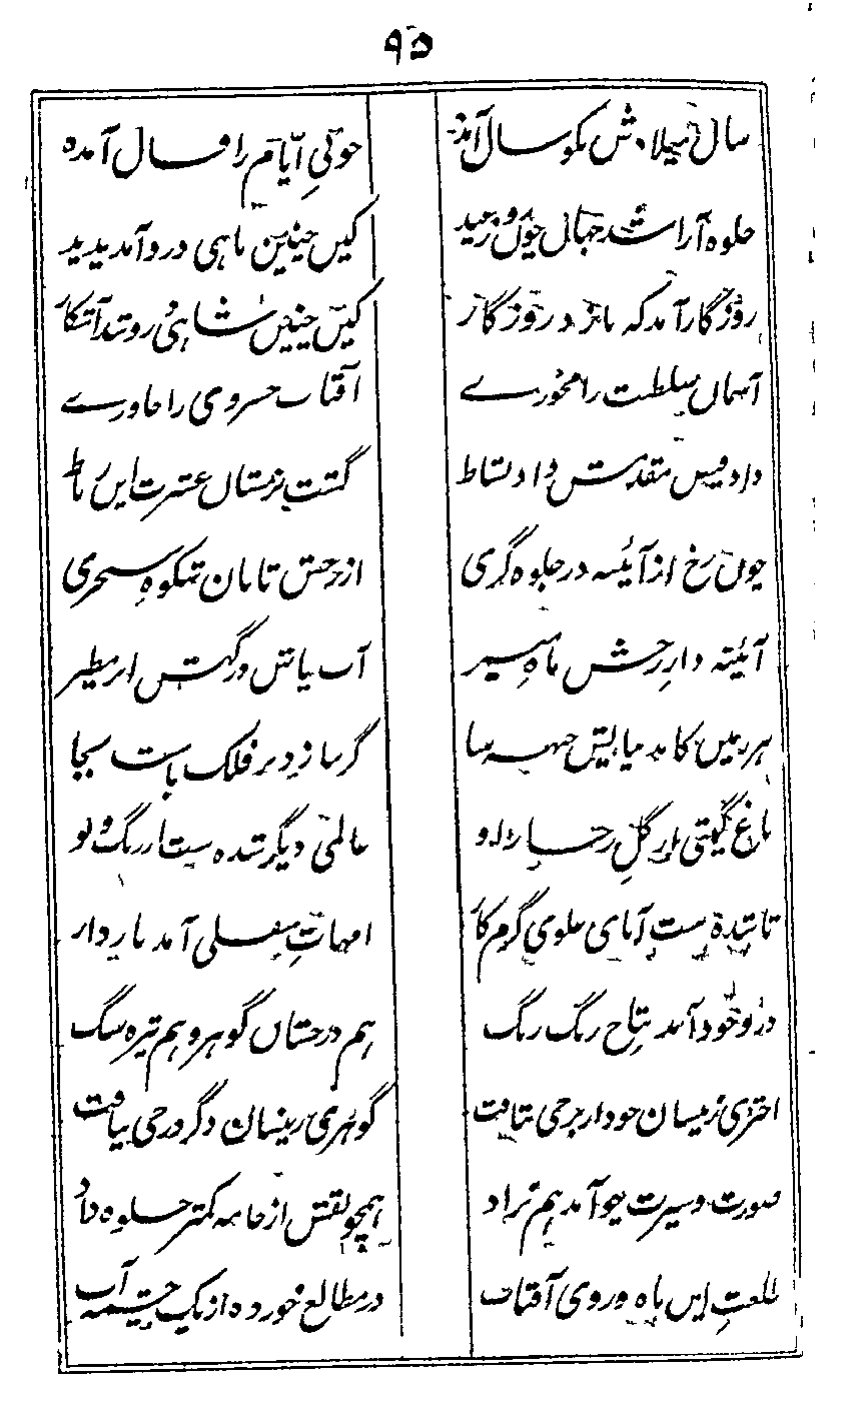 ۹۵
سال میلادش نکو سال آمده خوبی ایام را فال آمده
جلوه آرا شد جهان چون بر دمید کین چنین ماهی درو آمد پدید
روزگار آمد که نازد روزگار کین چنین شاهی درو شد آشکار
آسمان سلطنت را محورے آفتاب خسروی را خاورے
داد فیض مقدمش داد نشاط گشت بزمستان عشرت این رباط
چون رخ از آئینه در جلوه گری از رخش تابان شکوه سنجری
آئینه دارِ رخش ماهِ سپهر آب پاش درگهش ابر مطیر
هر زمین کامد بپایش جبهه سا گر بنازد بر فلک باشد بجا
باغ گیتی را ز گل رخسار او عالمی دیگر شده ست از رنگ و بو
تا شده ست آبای علوی گرم کار امهاتِ سفلی آمد باردار
در وجود آمد نتاج رنگ رنگ هم درخشان گوهر و هم تیره سنگ
اختری زینسان خود از برجی نتافت گوهری زینسان دگر درجی نیافت
صورت و سیرت چو آمد هم نژاد همچو نقش از خامه کمتر جلوه داد
طلعتِ این ماه و روی آفتاب در مطالع خورده از یک چشمه آب